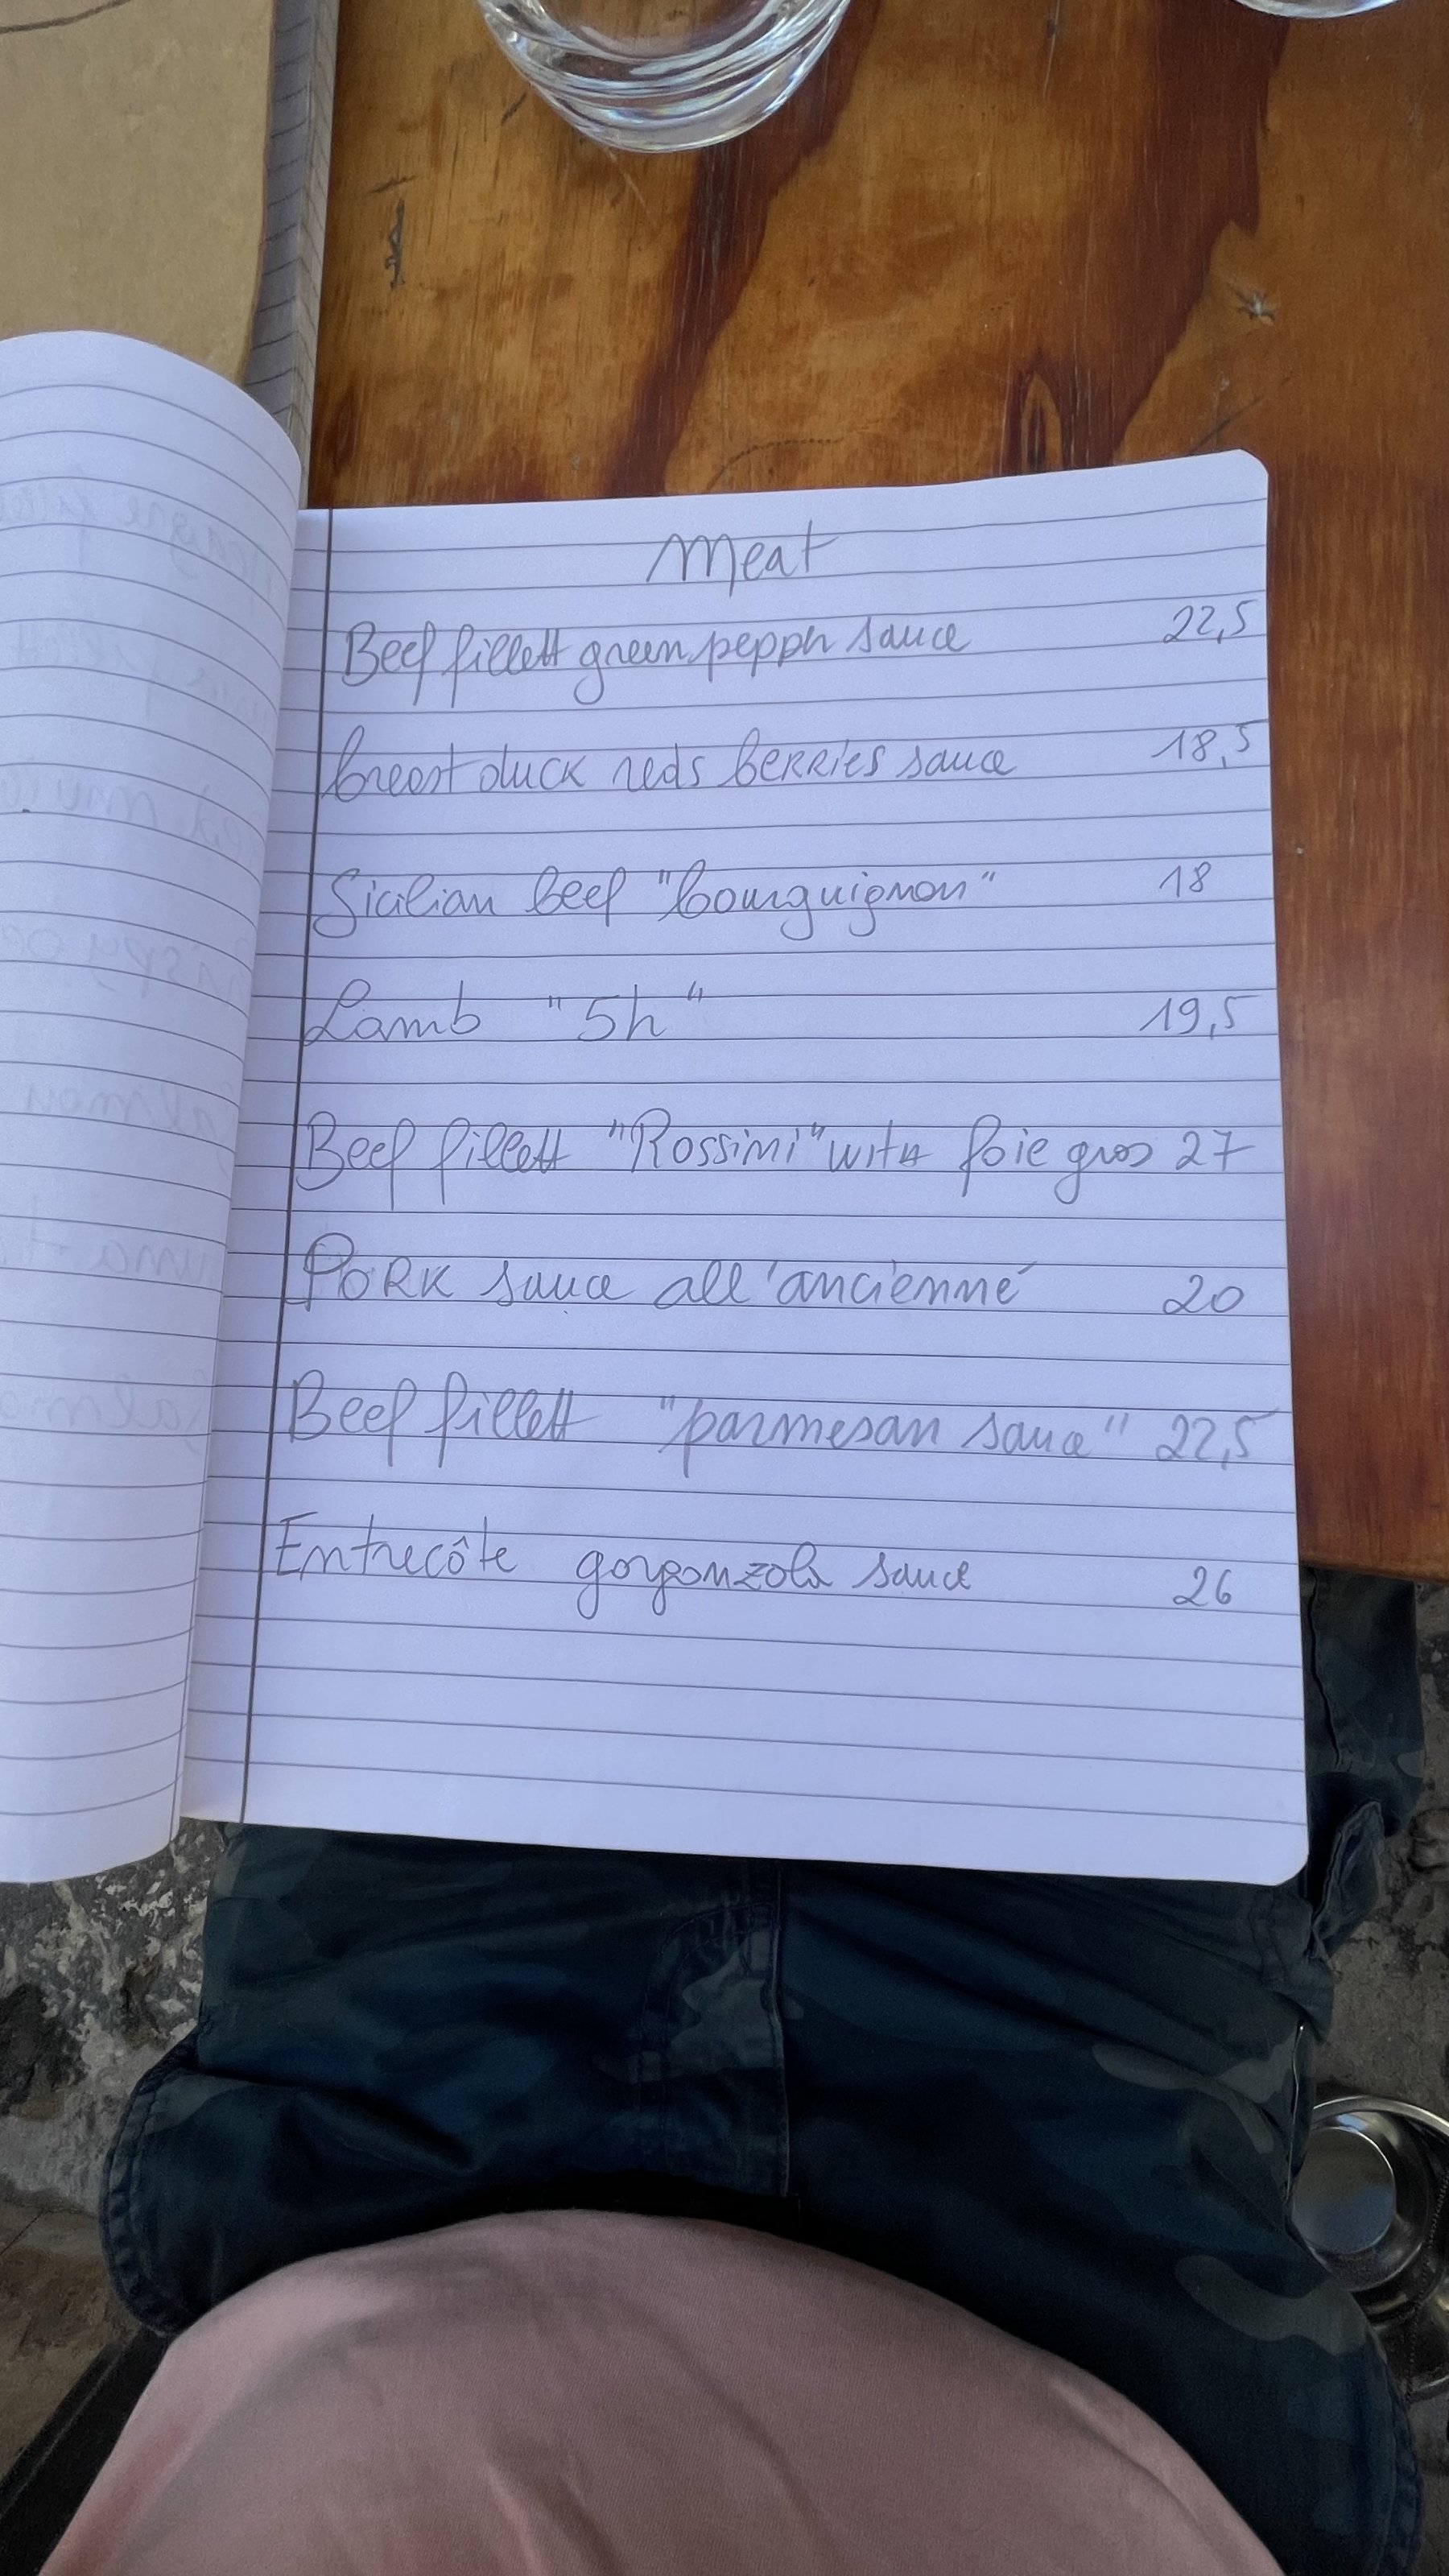 Meat
Beef fillett green peppr sauce 22,5
breast duck reds berries sauce 18,5
Sicilian beef "bourguignon" 18
Lamb "5h" 19,5
Beef fillett "Rossini" with foie gras 27
Pork sauce all'ancienne 20
Beef fillett "parmesan sauce" 22,5
Entrecôte gorgonzola sauce 26